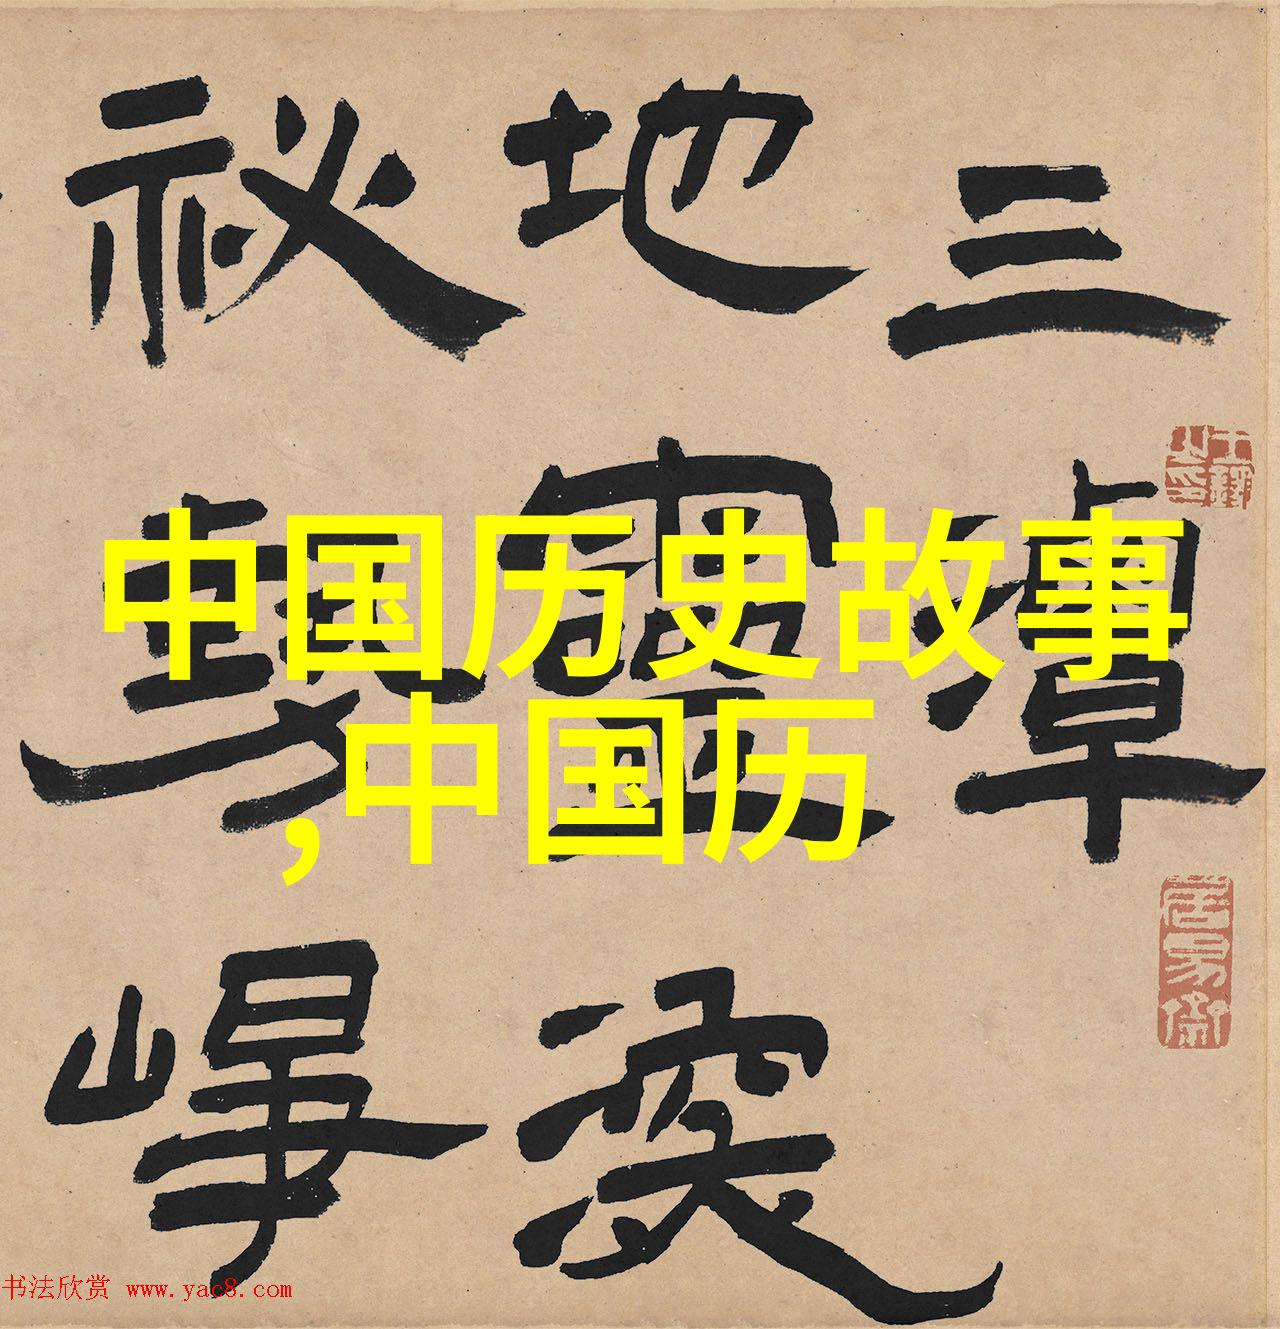 三潭
地靈
秘勢
中国历史故事
,中国历
书法欣赏 www.yac8.com